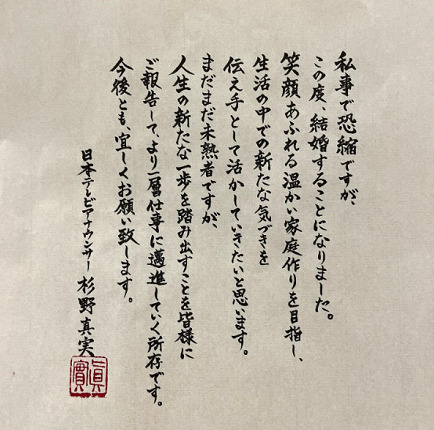 私事で恐縮ですが、
この度、結婚することになりました。
笑顔あふれる温かい家庭作りを目指し、
生活の中での新たな気づきを
伝え手として活かしていきたいと思います。
まだまだ未熟者ですが、
人生の新たな一歩を踏み出すことを皆様に
ご報告して、より一層仕事に邁進していく所存です。
今後とも、宜しくお願い致します。
日本テレビアナウンサー 杉野真実
眞實